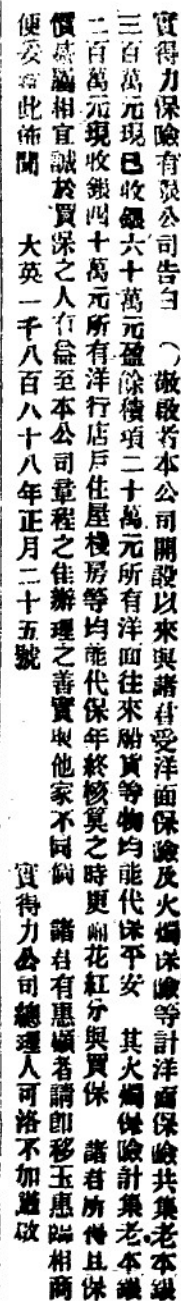 實得力保險有限公司告白　敬啟者本公司開設以來與諸君受洋面保險及火燭保險等計洋面保險共集老本銀
三百萬元現已收銀六十萬元盈餘積項二十萬元所有洋面往來船貨等物均能代保平安　其火燭保險計集老本銀
二百萬元現收銀四十萬元所有洋行店戶住屋棧房等均能代保年終核算之時更有花紅分與買保　諸君所得且保
價甚屬相宜誠於買保之人有益至本公司章程之佳辦理之善實與他家不同倘　諸君有惠顧者請即移玉惠臨相商
便妥此佈聞　大英一千八百八十八年正月二十五號　實得力公司總理人可洛不加邋啟